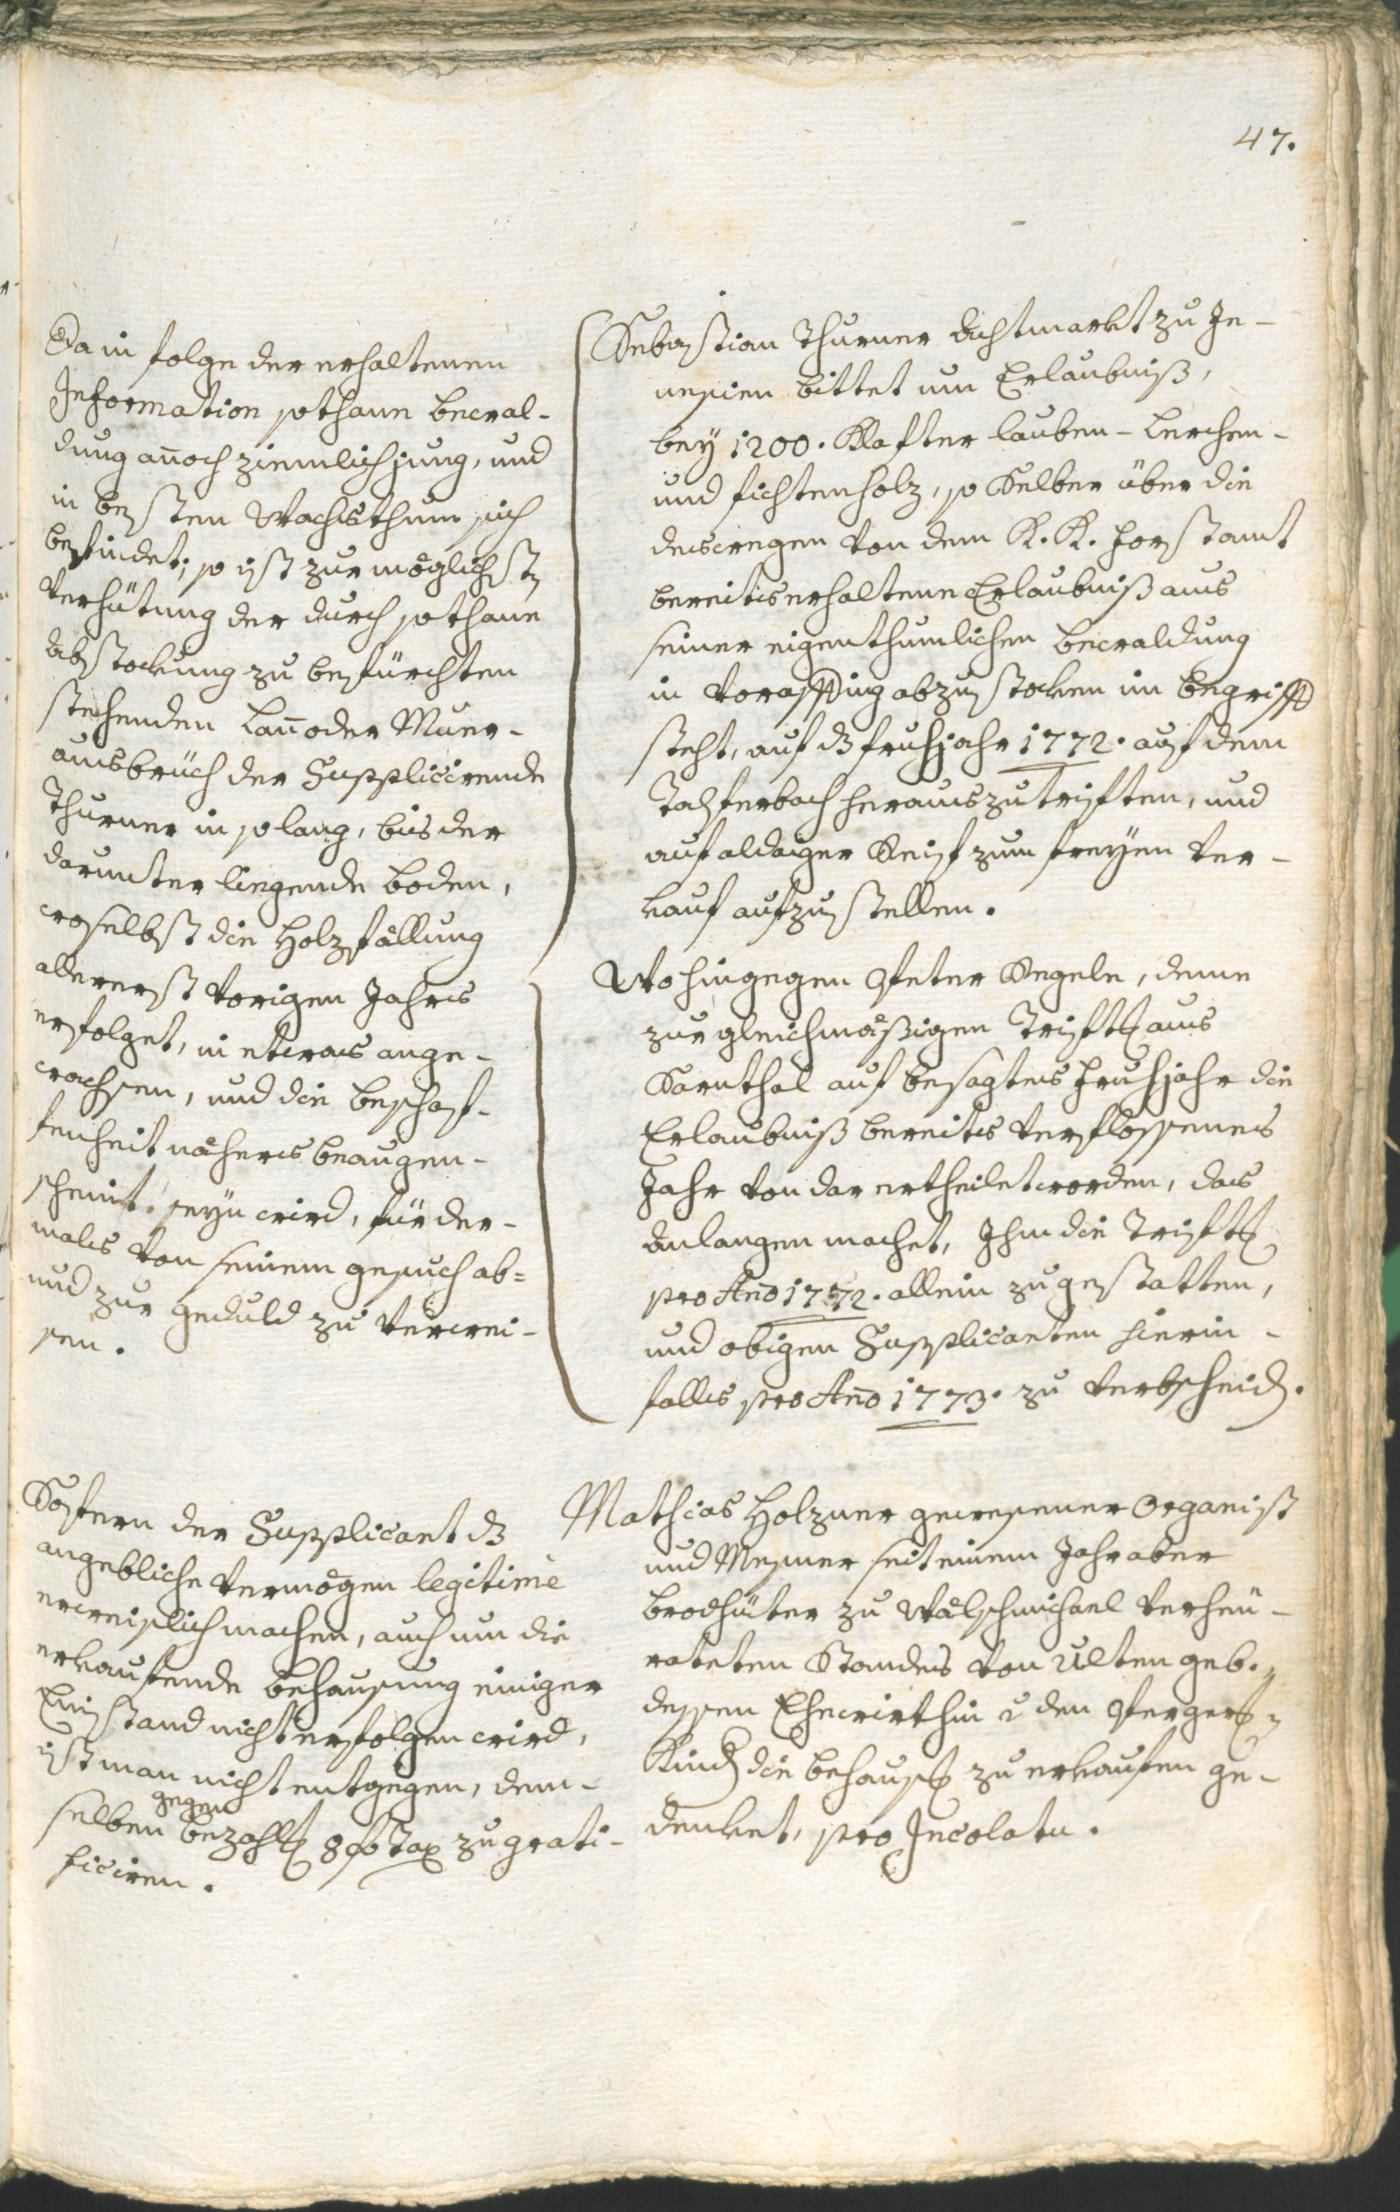 47.
Da in folge der erhaltenen
Information sothane bewal-
dung añoch ziemlich jung, und
in besten Wachsthum sich
befindet; so ist zur möglichst
Verhütung der durch sothane
Abstockung zu befürchten
stehenden Lañ oder Muer-
ausbrüch der Supplicirende
Thurner in solang, bis der
darunter liegende boden,
woselbst die Holzfällung
allererst vorigen Jahrs
erfolget, in etwas ange-
wachsen, und die beschaf-
fenheit näheres beaugen-
scheint seyn wird, für der-
mals von seinem gesuch ab-
und zur gedult zu verwei-
sen.
Sebastian Thurner Achtmarkt zu Je-
nesien bittet um Erlaubniß,
bey 1200. Klafter lauben- Lerchen-
und fichtenholz, so Selber über die
deswegen von dem K. K. Forstamt
bereits erhaltene Erlaubniß aus
seiner eigenthumlichen bewaldung
in Vorassing abzustocken im begriff
steht, auf dz fruhjahr 1772. auf dem
Talferbach herauszutriften, und
auf aldaiger Reif zum freyen Ver-
kauf aufzustellen.
Wohingegen Peter Kegele, deme
zur gleichmäßigen Trift aus
Sarnthal auf besagtes Fruhjahr die
Erlaubniß bereits verflossenes
Jahr von dar ertheilet worden, das
Anlangen machet, Ihm die Trift
pro Año 1772. allein zu gestatten,
und obigen Supplicanten hierin-
falls pro Año 1773. zu verbscheid.
Sofern der Supplicant dz
angebliche Vermögen legitime
erweislich machen, auch um die
erkaufende behausung einiger
Einstand nicht erfolgen wird,
ist man nicht entgegen, dem-
selben gegen bezahlt 8 f Tax zu grati-
ficiren.
Mathias Holzner gewesener Organist
und Mesner seit einem Jahr aber
brodhüter zu Wälschmichael verheü-
rateten Standes von Ulten geb.
dessen Ehewirthin v. den Perger
Kind die behaus zu erkaufen ge-
denket, pro Incolatu.